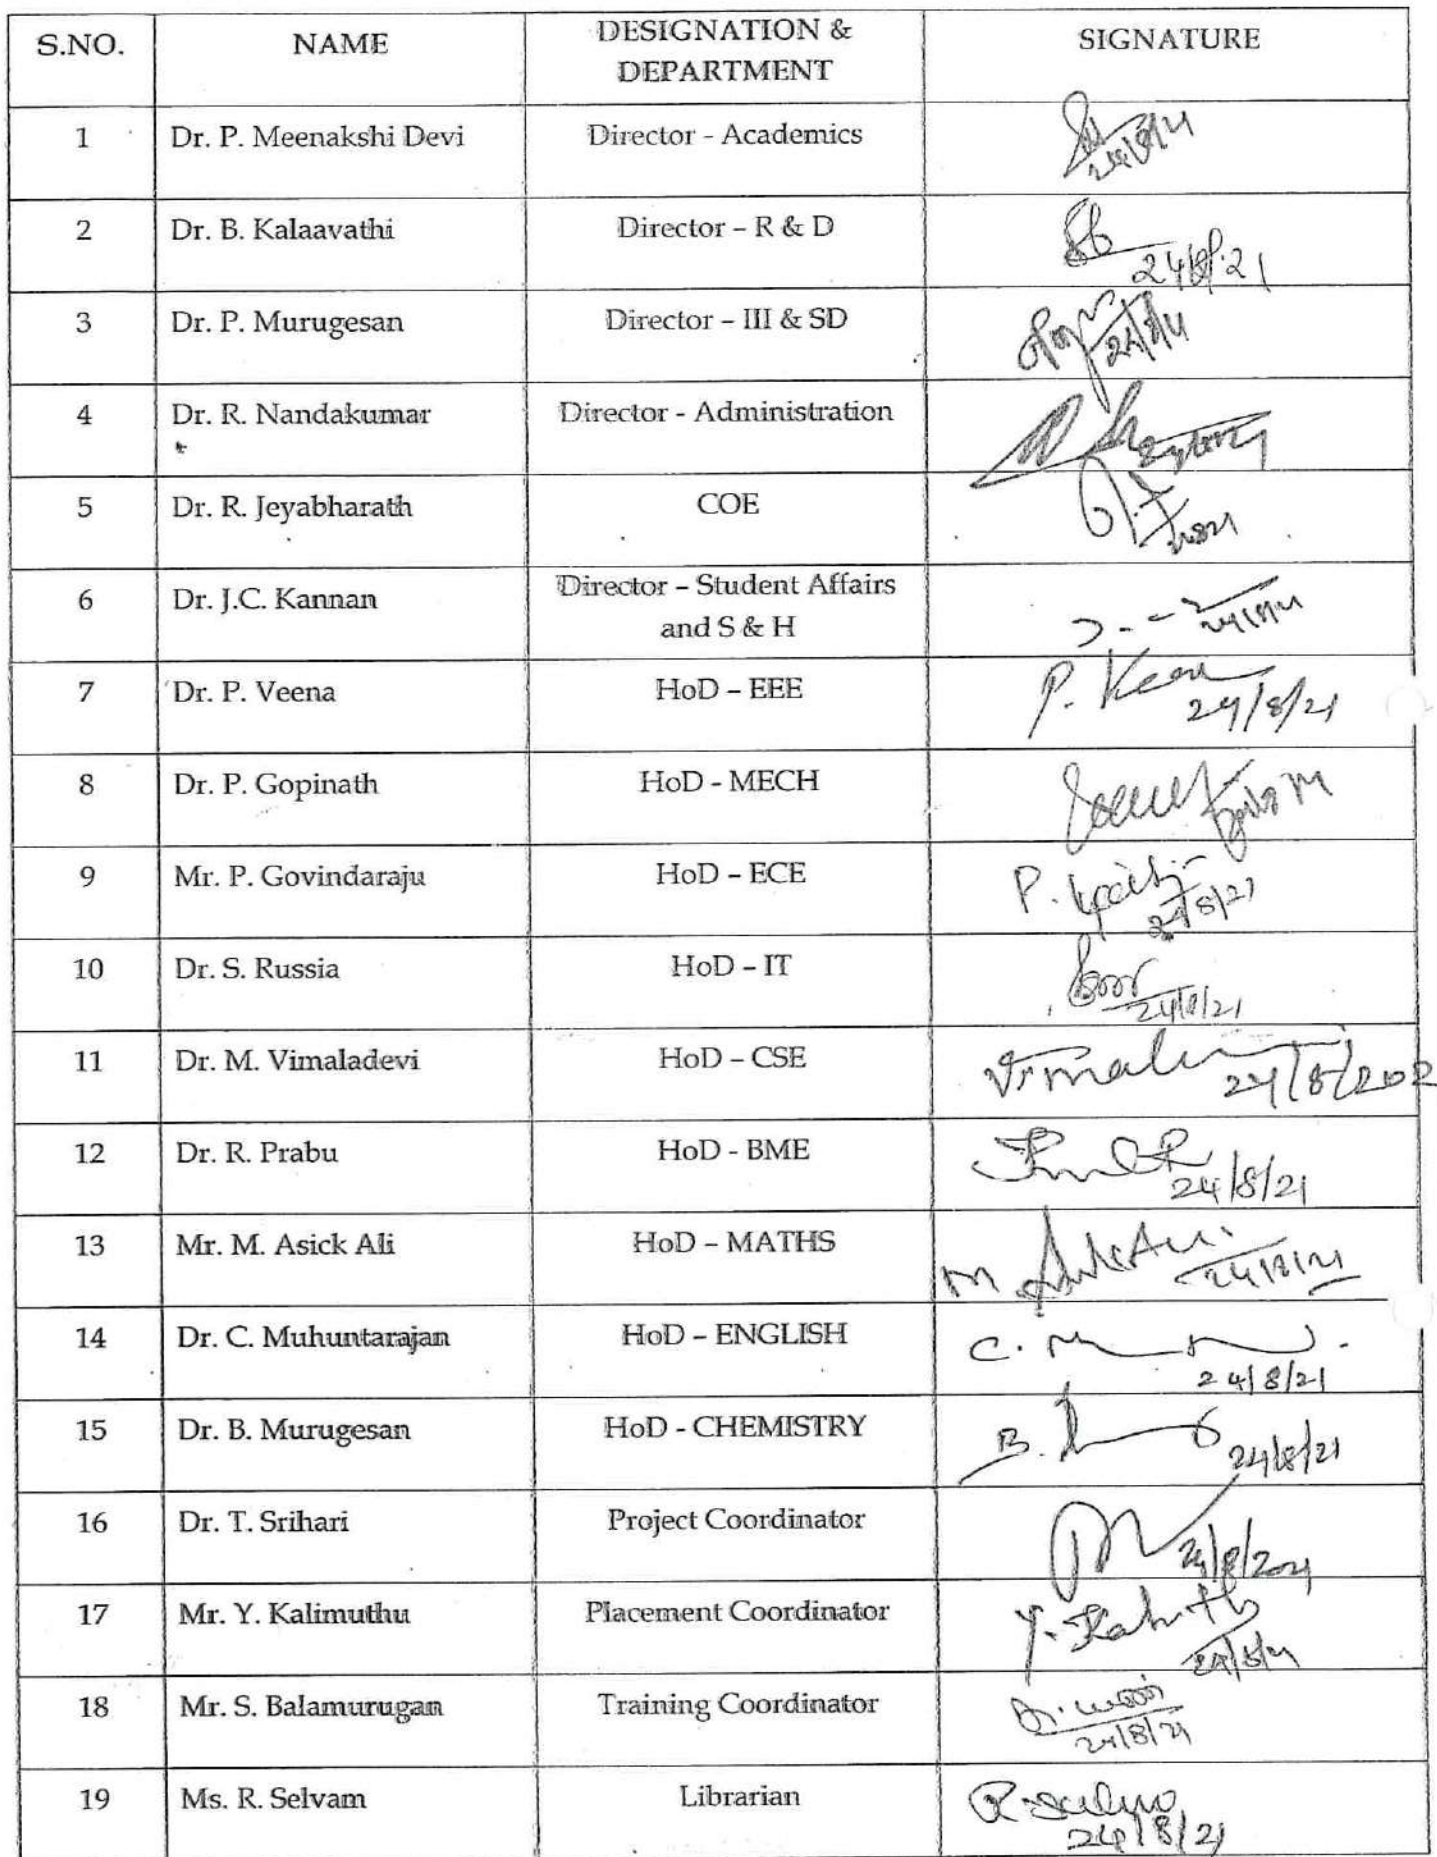 S.NO. NAME DESIGNATION & SIGNATURE
DEPARTMENT
1 Dr. P. Meenakshi Devi Director - Academics
2 Dr. B. Kalaavathi Director – R & D
24/8/21
3 Dr. P. Murugesan Director – III & SD
4 Dr. R. Nandakumar Director - Administration
5 Dr. R. Jeyabharath COE
6 Dr. J.C. Kannan Director – Student Affairs
and S & H
7 Dr. P. Veena HoD – EEE P. Veena
24/8/21
8 Dr. P. Gopinath HoD - MECH
9 Mr. P. Govindaraju HoD – ECE P.
24/8/21
10 Dr. S. Russia HoD – IT
24/8/21
11 Dr. M. Vimaladevi HoD – CSE
24/8/202
12 Dr. R. Prabu HoD - BME
24/8/21
13 Mr. M. Asick Ali HoD – MATHS M
24/8/21
14 Dr. C. Muhuntarajan HoD – ENGLISH C.
24/8/21
15 Dr. B. Murugesan HoD - CHEMISTRY B.
24/8/21
16 Dr. T. Srihari Project Coordinator
24/8/2021
17 Mr. Y. Kalimuthu Placement Coordinator Y.
24/8/21
18 Mr. S. Balamurugan Training Coordinator
24/8/21
19 Ms. R. Selvam Librarian R.
24/8/21